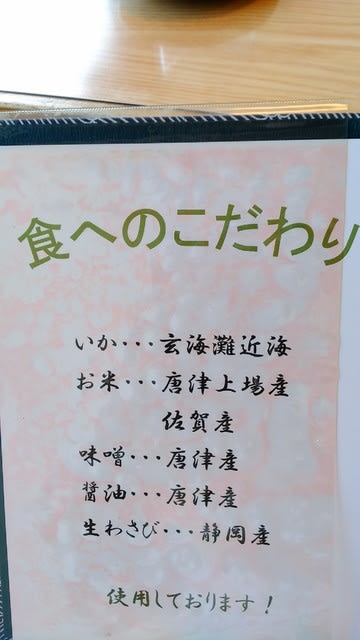 食へのこだわり
いか・・・玄海灘近海
お米・・・唐津上場産
佐賀産
味噌・・・唐津産
醤油・・・唐津産
生わさび・・・静岡産
使用しております!